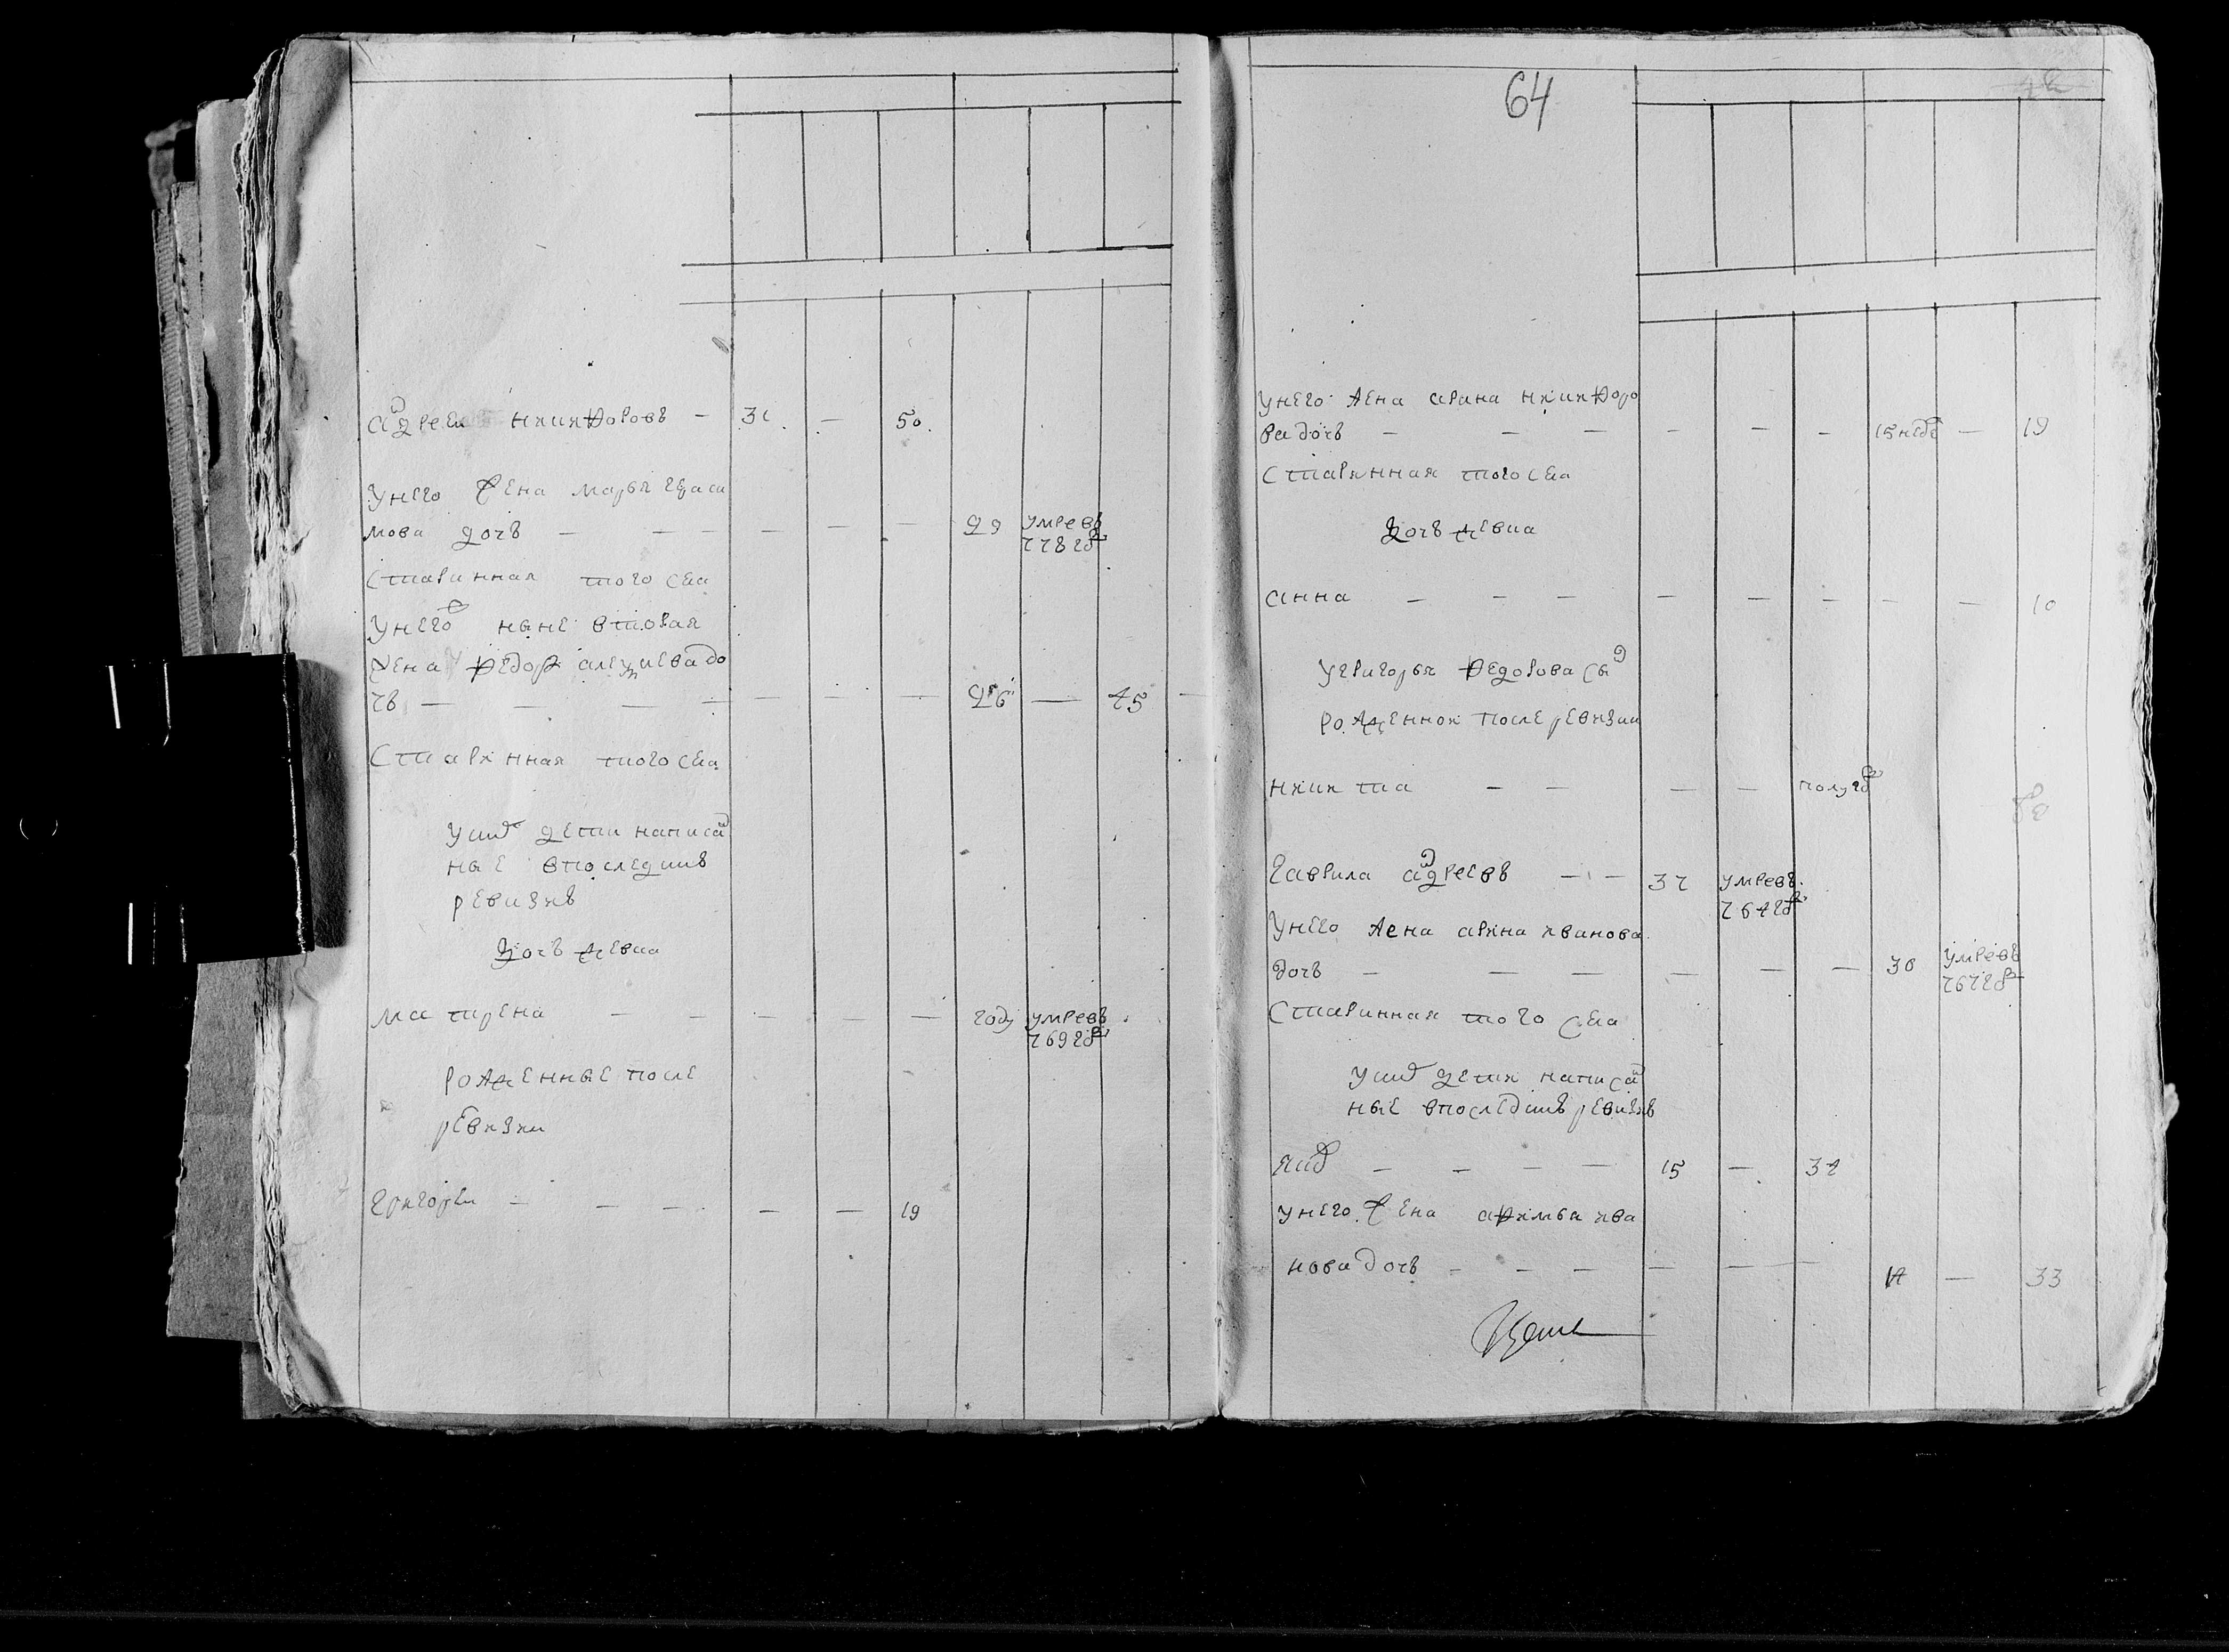 андреи никифоровъ — 31 — 50
У него жена марья гераси
мова дочь — — — — — — 29 умре въ
778 году
Старинная того села
У него ж ныне вторая
жена федора
до
чь — — — — — — 26 — 45
Старинная того села
У них дети написан
ные в последнъ
ревизиъ
дочь девка
матрена — — — — — году умре въ
769 году
рожденные после
ревизии
Григореи — — — — — 19
64
У него жена арина никифоро
ва дочь — — — — — — 15 недель — 19
Старинная того села
дочь девка
анна — — — — — — — — 10
У григорья федорова сын
рожденнои после ревизии
никита — — — — полугоду
Гаврила андреевъ — — 37 умре въ
764 году
У него жена арина иванова
дочь — — — — — — 30 умре въ
767 году
Старинная того села
У них дети написан
ные в последнъ ревизиъ
— — — — 15 — 37
У него жена афимья ива
нова дочь — — — — — — 14 — 33